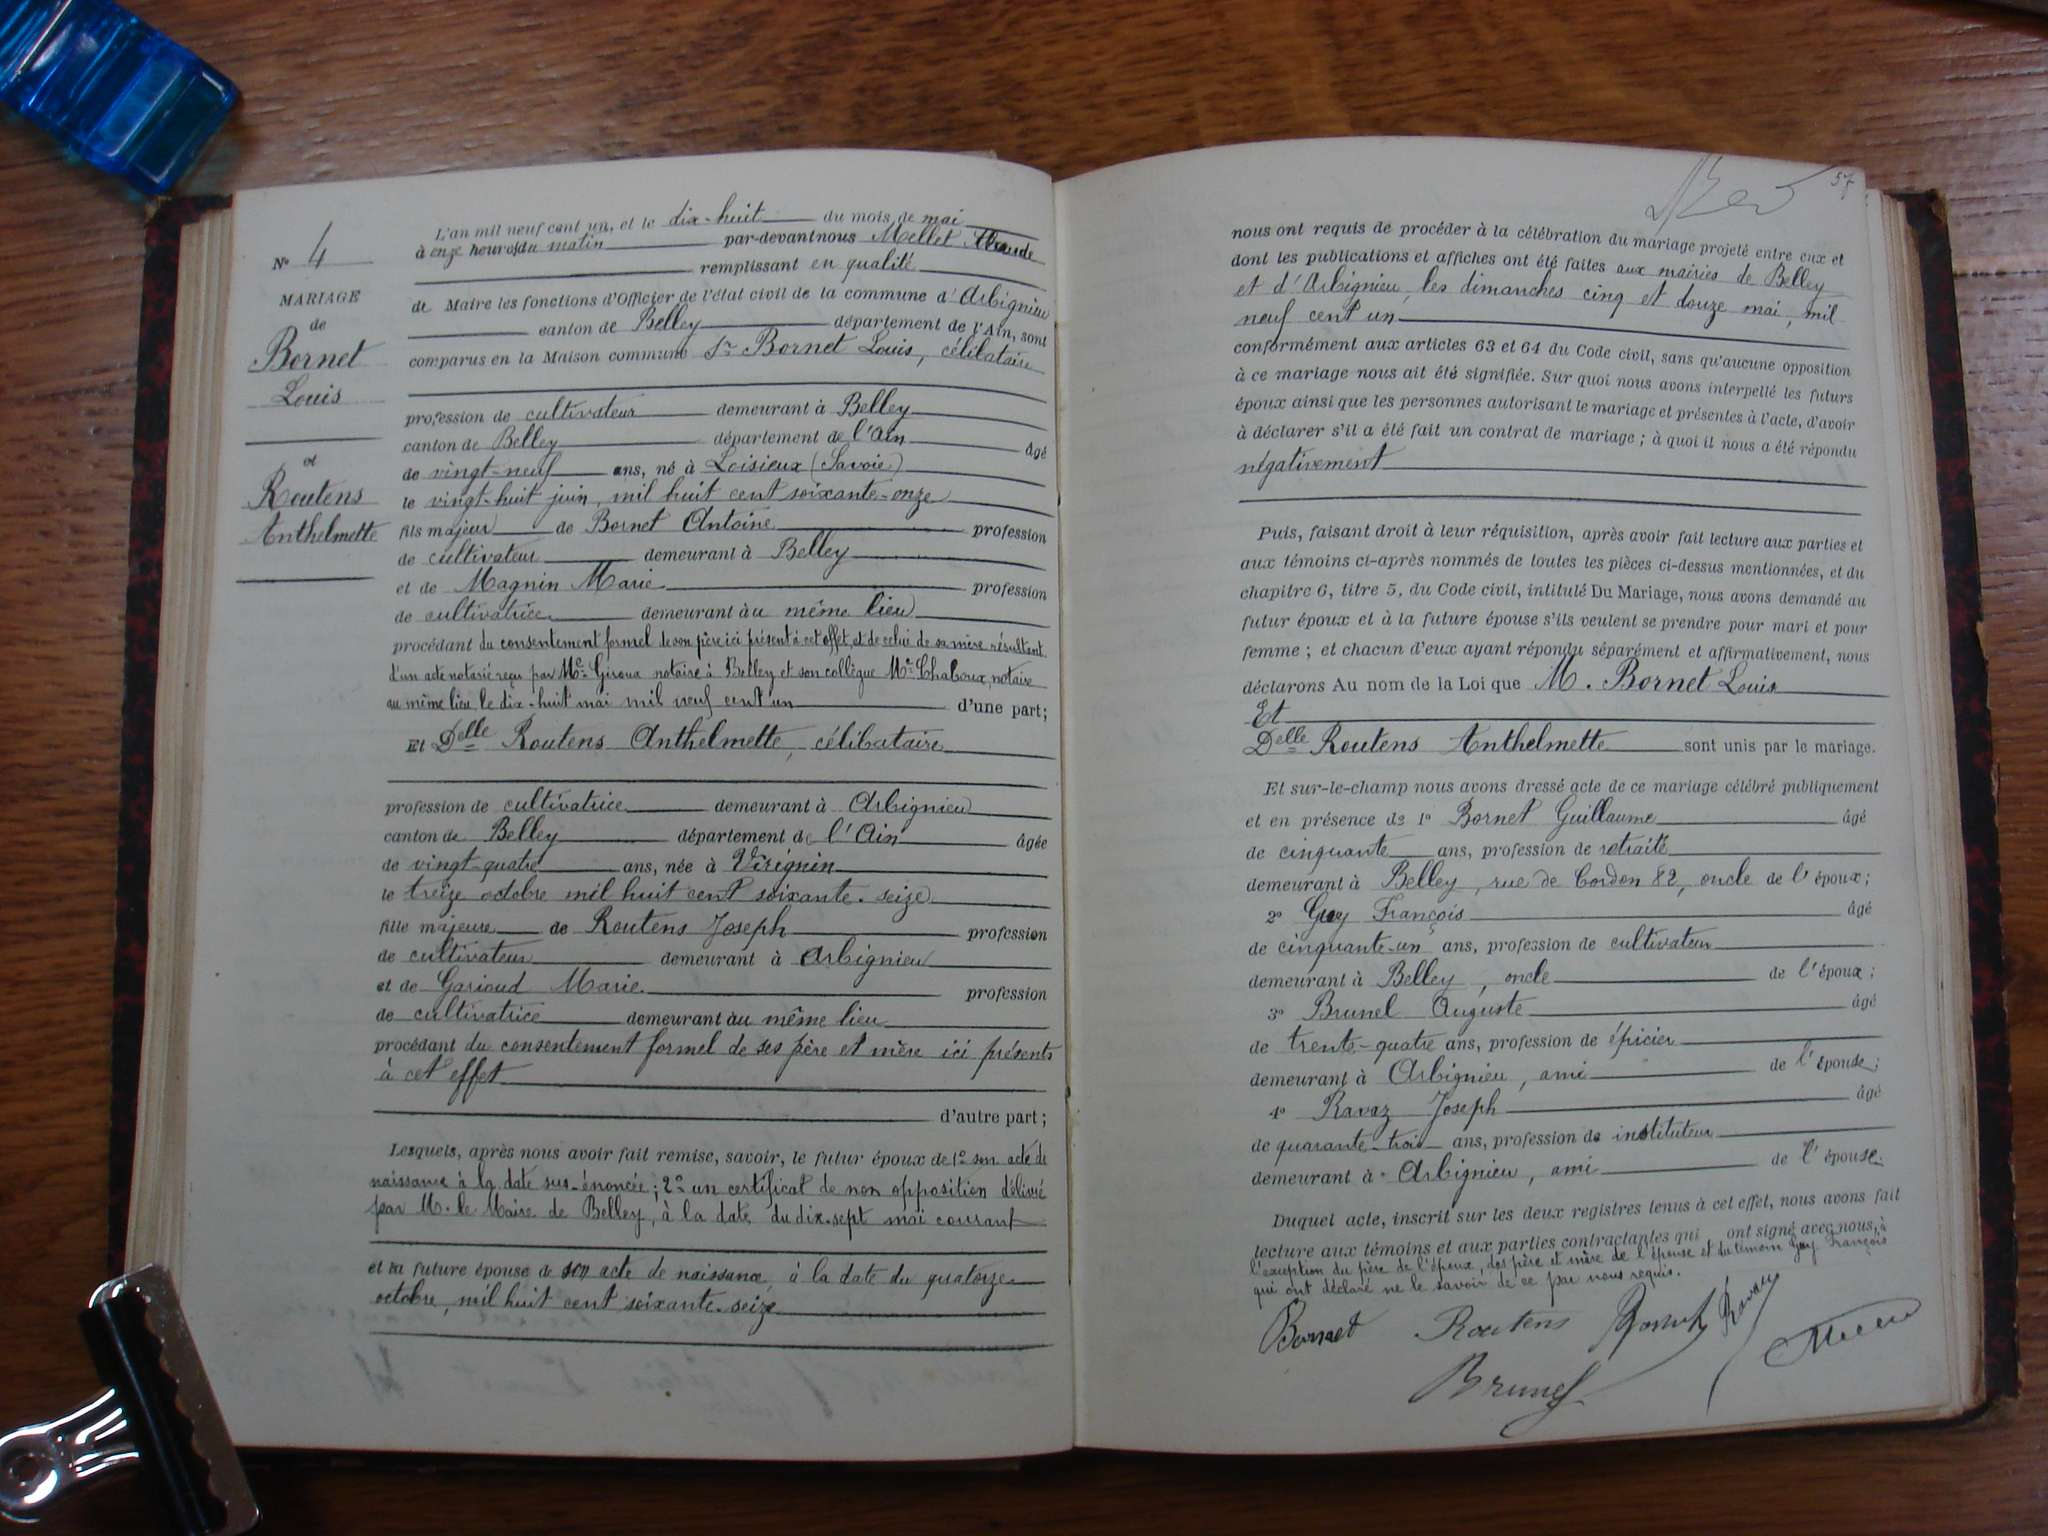 L'an mil neuf cent un, et le dix-huit du mois de mai
à onze heures du matin par-devant nous Mellet
remplissant en qualité
de Maire les fonctions d'Officier de l'état civil de la commune d'Arbignieu
canton de Belley département de l'Ain, sont
comparus en la Maison commune Sr Bornet Louis, célibataire
profession de cultivateur demeurant à Belley
canton de Belley département de l'Ain âgé
de vingt-neuf ans, né à Loisieux (Savoie)
le vingt-huit juin, mil huit cent soixante-onze
fils majeur de Bornet Antoine profession
de cultivateur demeurant à Belley
et de Magnin Marie profession
de cultivatrice demeurant au même lieu
procédant du consentement formel de son père ici présent à cet effet, et de celui de sa mère résultant
d'un acte notarié reçu par Me Giroux notaire à Belley et son collègue Me Chaboux, notaire
au même lieu, le dix-huit mai mil neuf cent un d'une part;
Et Delle Routens Anthelmette, célibataire
profession de cultivatrice demeurant à Arbignieu
canton de Belley département de l'Ain âgée
de vingt-quatre ans, née à Virignin
le treize octobre mil huit cent soixante-seize
fille majeure de Routens Joseph profession
de cultivateur demeurant à Arbignieu
et de Garioud Marie profession
de cultivatrice demeurant au même lieu
procédant du consentement formel de ses père et mère ici présents
à cet effet
d'autre part;
Lesquels, après nous avoir fait remise, savoir, le futur époux de 1° son acte de
naissance à la date sus-énoncée; 2° un certificat de non opposition délivré
par M. le Maire de Belley, à la date du dix-sept mai courant
et la future épouse de son acte de naissance, à la date du quatorze
octobre, mil huit cent soixante-seize
N° 4
MARIAGE
de
Bornet
Louis
et
Routens
Anthelmette
57
nous ont requis de procéder à la célébration du mariage projeté entre eux et
dont les publications et affiches ont été faites aux mairies de Belley
et d'Arbignieu, les dimanches cinq et douze mai, mil
neuf cent un
conformément aux articles 63 et 64 du Code civil, sans qu'aucune opposition
à ce mariage nous ait été signifiée. Sur quoi nous avons interpellé les futurs
époux ainsi que les personnes autorisant le mariage et présentes à l'acte, d'avoir
à déclarer s'il a été fait un contrat de mariage; à quoi il nous a été répondu
négativement
Puis, faisant droit à leur réquisition, après avoir fait lecture aux parties et
aux témoins ci-après nommés de toutes les pièces ci-dessus mentionnées, et du
chapitre 6, titre 5, du Code civil, intitulé Du Mariage, nous avons demandé au
futur époux et à la future épouse s'ils veulent se prendre pour mari et pour
femme; et chacun d'eux ayant répondu séparément et affirmativement, nous
déclarons Au nom de la Loi que M. Bornet Louis
Et
Delle Routens Anthelmette sont unis par le mariage.
Et sur-le-champ nous avons dressé acte de ce mariage célébré publiquement
et en présence de 1° Bornet Guillaume âgé
de cinquante ans, profession de retraité
demeurant à Belley, rue de Cordon 82, oncle de l'époux;
2° Guy François âgé
de cinquante-un ans, profession de cultivateur
demeurant à Belley, oncle de l'époux;
3° Brunel Auguste âgé
de trente-quatre ans, profession de épicier
demeurant à Arbignieu, ami de l'épouse;
4° Ravaz Joseph âgé
de quarante-trois ans, profession de instituteur
demeurant à Arbignieu, ami de l'épouse.
Duquel acte, inscrit sur les deux registres tenus à cet effet, nous avons fait
lecture aux témoins et aux parties contractantes qui ont signé avec nous, à
l'exception du père de l'époux, des père et mère de l'épouse et du témoin Guy François
qui ont déclaré ne le savoir de ce par nous requis.
Bornet Routens Bornet Ravaz
Brunel